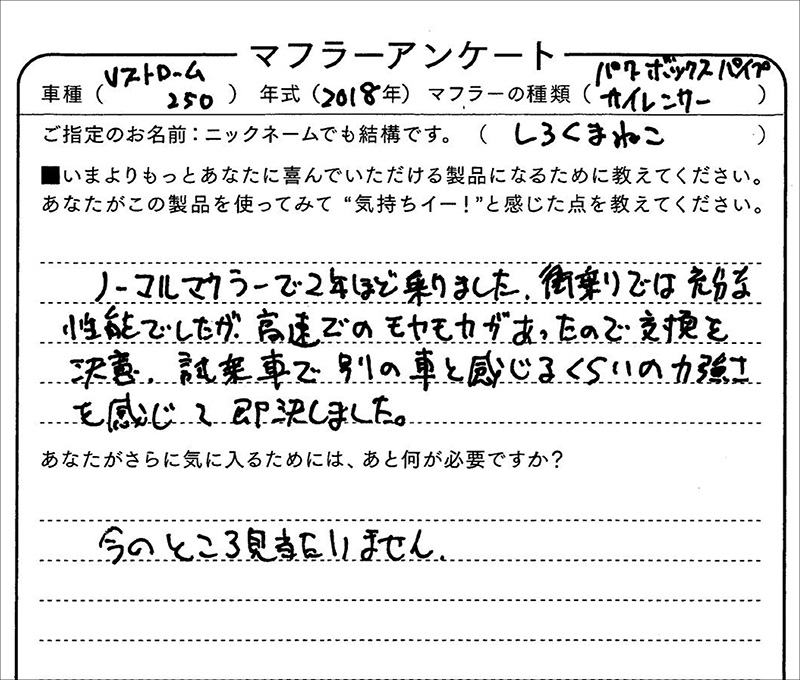 マフラーアンケート
車種（Vストローム250）年式（2018年）マフラーの種類（パワーボックスパイプサイレンサー）
ご指定のお名前：ニックネームでも結構です。（しろくまねこ）
■いまよりもっとあなたに喜んでいただける製品になるために教えてください。
あなたがこの製品を使ってみて“気持ちイー！”と感じた点を教えてください。
ノーマルマフラーで2年ほど乗りました。街乗りでは充分な
性能でしたが、高速でのモヤモヤがあったので交換を
決意。試乗車で別の車と感じるくらいの力強さ
を感じて即決しました。
あなたがさらに気に入るためには、あと何が必要ですか？
今のところ見当たりません。